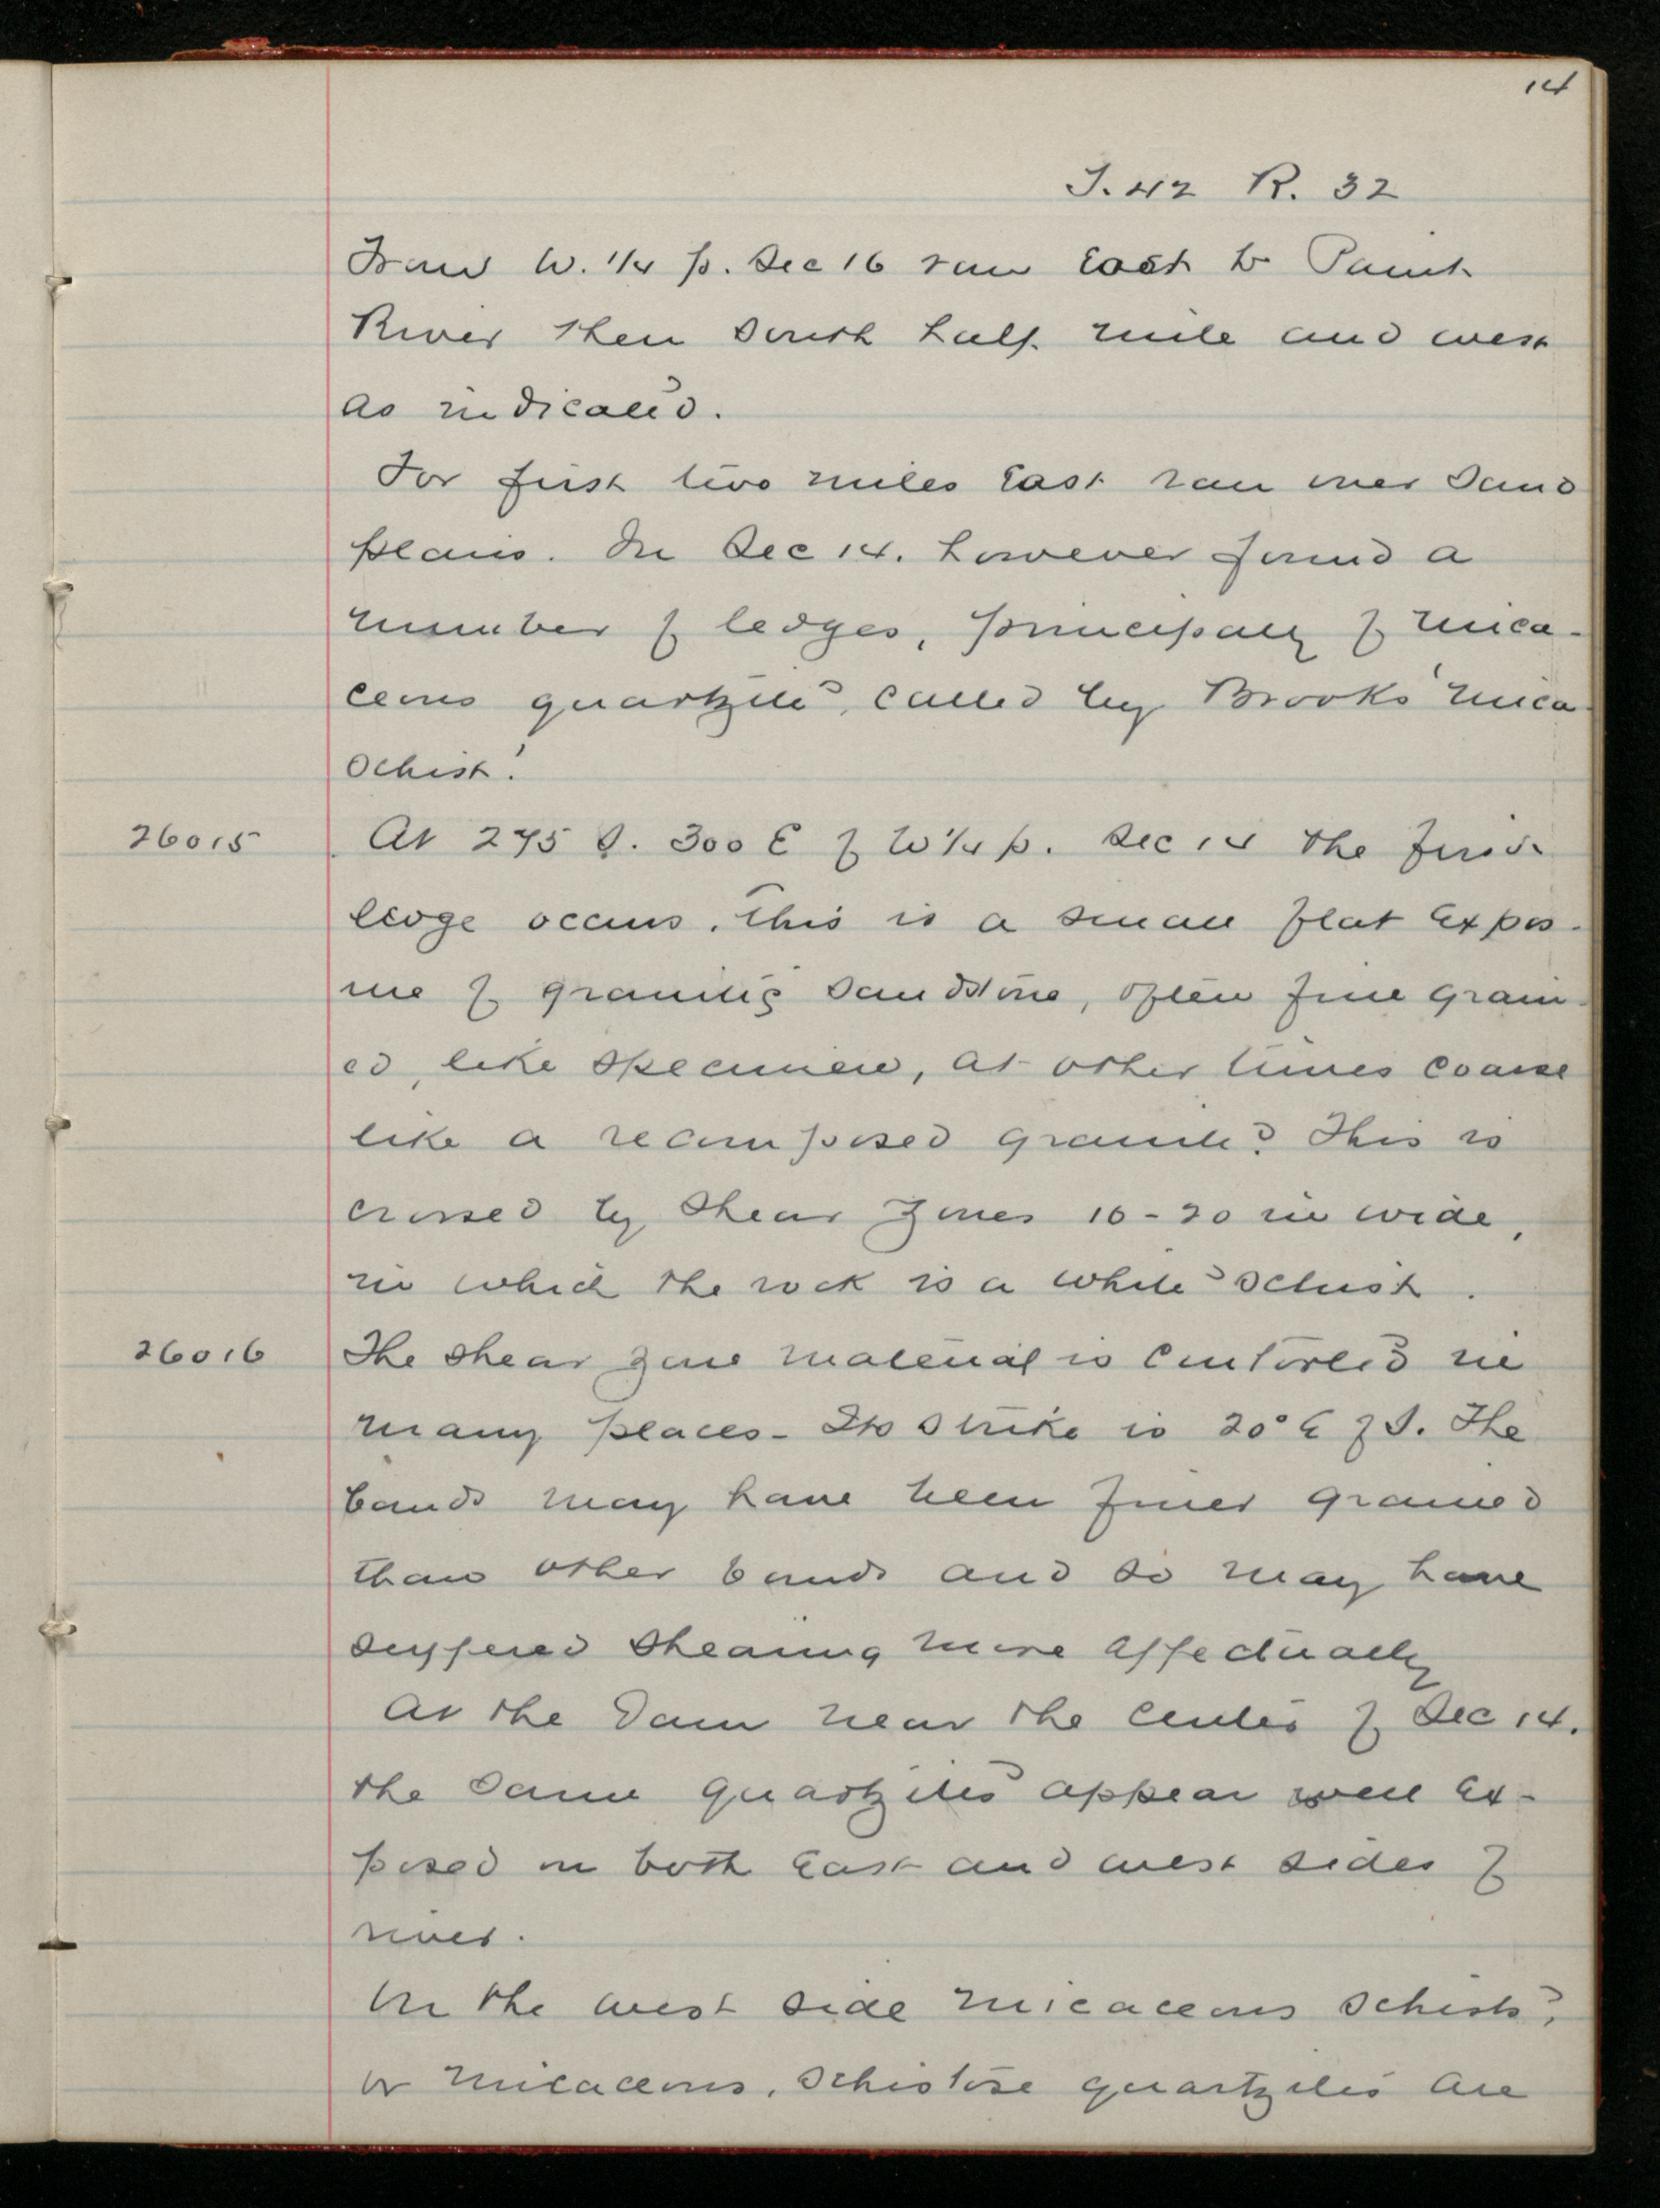 14
T. 42 R. 32
From W. 1/4 p. Sec 16 ran East to Paint
River then South half mile and west
as indicated.
For first two miles East ran over sand
plains. In Sec 14. however found a
number of ledges, principally of mica-
ceous quartzite, called by Brooks 'mica
schist.'
26015 At 275 S. 300 E of W 1/4 p. Sec 14 the first
ledge occurs. This is a small flat expos-
ure of granitic sandstone, often fine grain-
ed, like specimen, at other times coarse
like a recomposed granite. This is
crossed by shear zones 10-20 in wide,
in which the rock is a white schist.
26016 The shear zone material is contorted in
many places - Its strike is 20° E of S. The
bands may have been finer grained
than other bands and so may have
suffered shearing more affectually
At the Dam near the center of Sec 14.
the same quartzites appear well ex-
posed on both East and west sides of
river.
On the west side micaceous schists,
or micaceous, schistose quartzites are